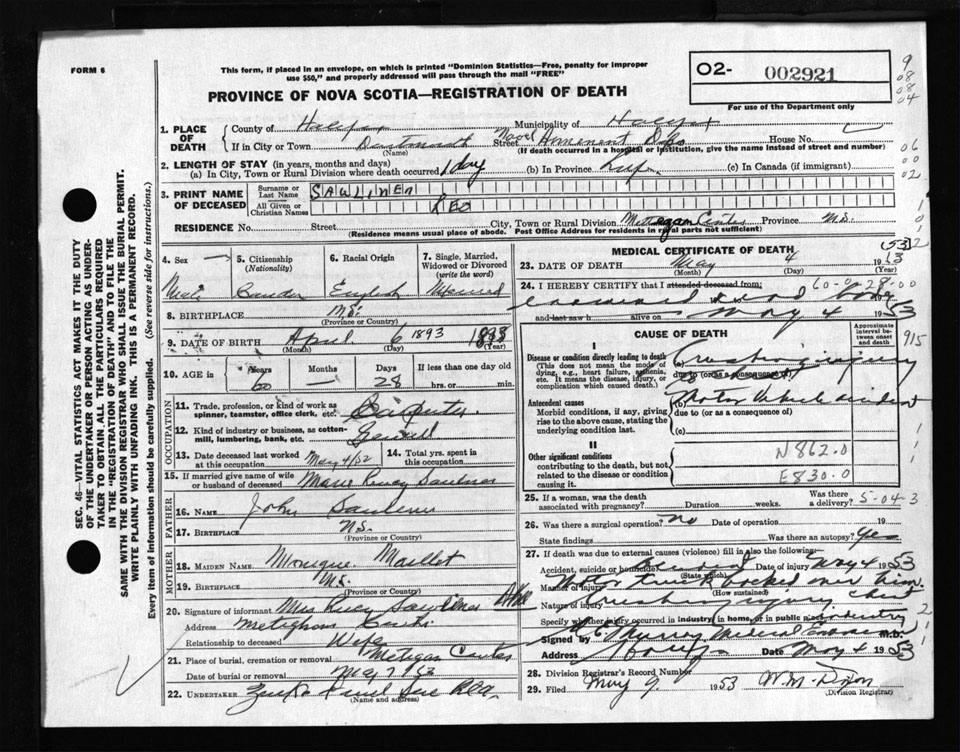 FORM 6
This form, if placed in an envelope, on which is printed "Dominion Statistics—Free, penalty for improper
use $50," and properly addressed will pass through the mail "FREE"
O2- 002921
For use of the Department only
PROVINCE OF NOVA SCOTIA—REGISTRATION OF DEATH
1. PLACE OF DEATH
County of Halifax Municipality of Halifax
If in City or Town Dartmouth (Name) Street Naval House No.
(If death occurred in a hospital or institution, give the name instead of street and number)
2. LENGTH OF STAY (in years, months and days)
(a) In City, Town or Rural Division where death occurred 1 day (b) In Province Life (c) In Canada (if immigrant)
3. PRINT NAME OF DECEASED
Surname or Last Name SAWLINER
All Given or Christian Names LEO
RESIDENCE No. Street City, Town or Rural Division Metegan Centre Province N.S.
(Residence means usual place of abode. Post Office Address for residents in rural parts not sufficient)
4. Sex Male
5. Citizenship (Nationality)
6. Racial Origin English
7. Single, Married, Widowed or Divorced (write the word) Married
8. BIRTHPLACE N.S.
(Province or Country)
9. DATE OF BIRTH April 6 1893 1893
(Month) (Day) (Year)
10. AGE in Years 60 Months — Days 28 If less than one day old hrs. or min.
OCCUPATION
11. Trade, profession, or kind of work as spinner, teamster, office clerk, etc. Carpenter
12. Kind of industry or business, as cotten-mill, lumbering, bank, etc. General
13. Date deceased last worked at this occupation May 4/52
14. Total yrs. spent in this occupation
15. If married give name of wife or husband of deceased Marie
FATHER
16. Name John
17. Birthplace N.S.
(Province or Country)
MOTHER
18. MAIDEN NAME Monique Maillet
19. BIRTHPLACE N.S.
(Province or Country)
20. Signature of informant Mrs
Address
Relationship to deceased Wife
21. Place of burial, cremation or removal Metegan Centre
Date of burial or removal May 7/53
22. UNDERTAKER
(Name and address)
MEDICAL CERTIFICATE OF DEATH
23. DATE OF DEATH May 4 1953
(Month) (Day) (Year)
24. I HEREBY CERTIFY that I attended deceased from: 60-0-28-00
examined dead body
and last saw h alive on May 4 1953
CAUSE OF DEATH
Approximate interval between onset and death
I
Disease or condition directly leading to death
(This does not mean the mode of dying, e.g., heart failure, asthenia, etc. It means the disease, injury, or complication which caused death.)
(a) Crushing injury
due to (or as a consequence of)
Antecedent causes
Morbid conditions, if any, giving rise to the above cause, stating the underlying condition last.
Motor vehicle accident
due to (or as a consequence of)
(c)
II
Other significant conditions
contributing to the death, but not related to the disease or condition causing it.
N862.0
E830.0
25. If a woman, was the death associated with pregnancy? Duration weeks. Was there a delivery? 5-04-3
26. Was there a surgical operation? no Date of operation 19
State findings Was there an autopsy? Yes
27. If death was due to external causes (violence) fill in also the following:
Accident, suicide or homicide Accident (State which) Date of injury May 4 1953
Manner of injury Motor truck backed over him.
(How sustained)
Nature of injury Crushing injury chest
Specify whether injury occurred in industry, in home, or in public industry
Signed by Murray Medical Examiner M.D.
Address Halifax Date May 4 1953
28. Division Registrar's Record Number
29. Filed May 9 1953 W. M. Dixon
(Division Registrar)
SEC. 46—VITAL STATISTICS ACT MAKES IT THE DUTY
OF THE UNDERTAKER OR PERSON ACTING AS UNDER-
TAKER TO OBTAIN ALL THE PARTICULARS REQUIRED
IN THE "REGISTRATION OF DEATH" AND TO FILE THE
SAME WITH THE DIVISION REGISTRAR WHO SHALL ISSUE THE BURIAL PERMIT.
WRITE PLAINLY WITH UNFADING INK. THIS IS A PERMANENT RECORD.
Every item of information should be carefully supplied. (See reverse side for instructions.)
9
08
08
04
06
00
02
915